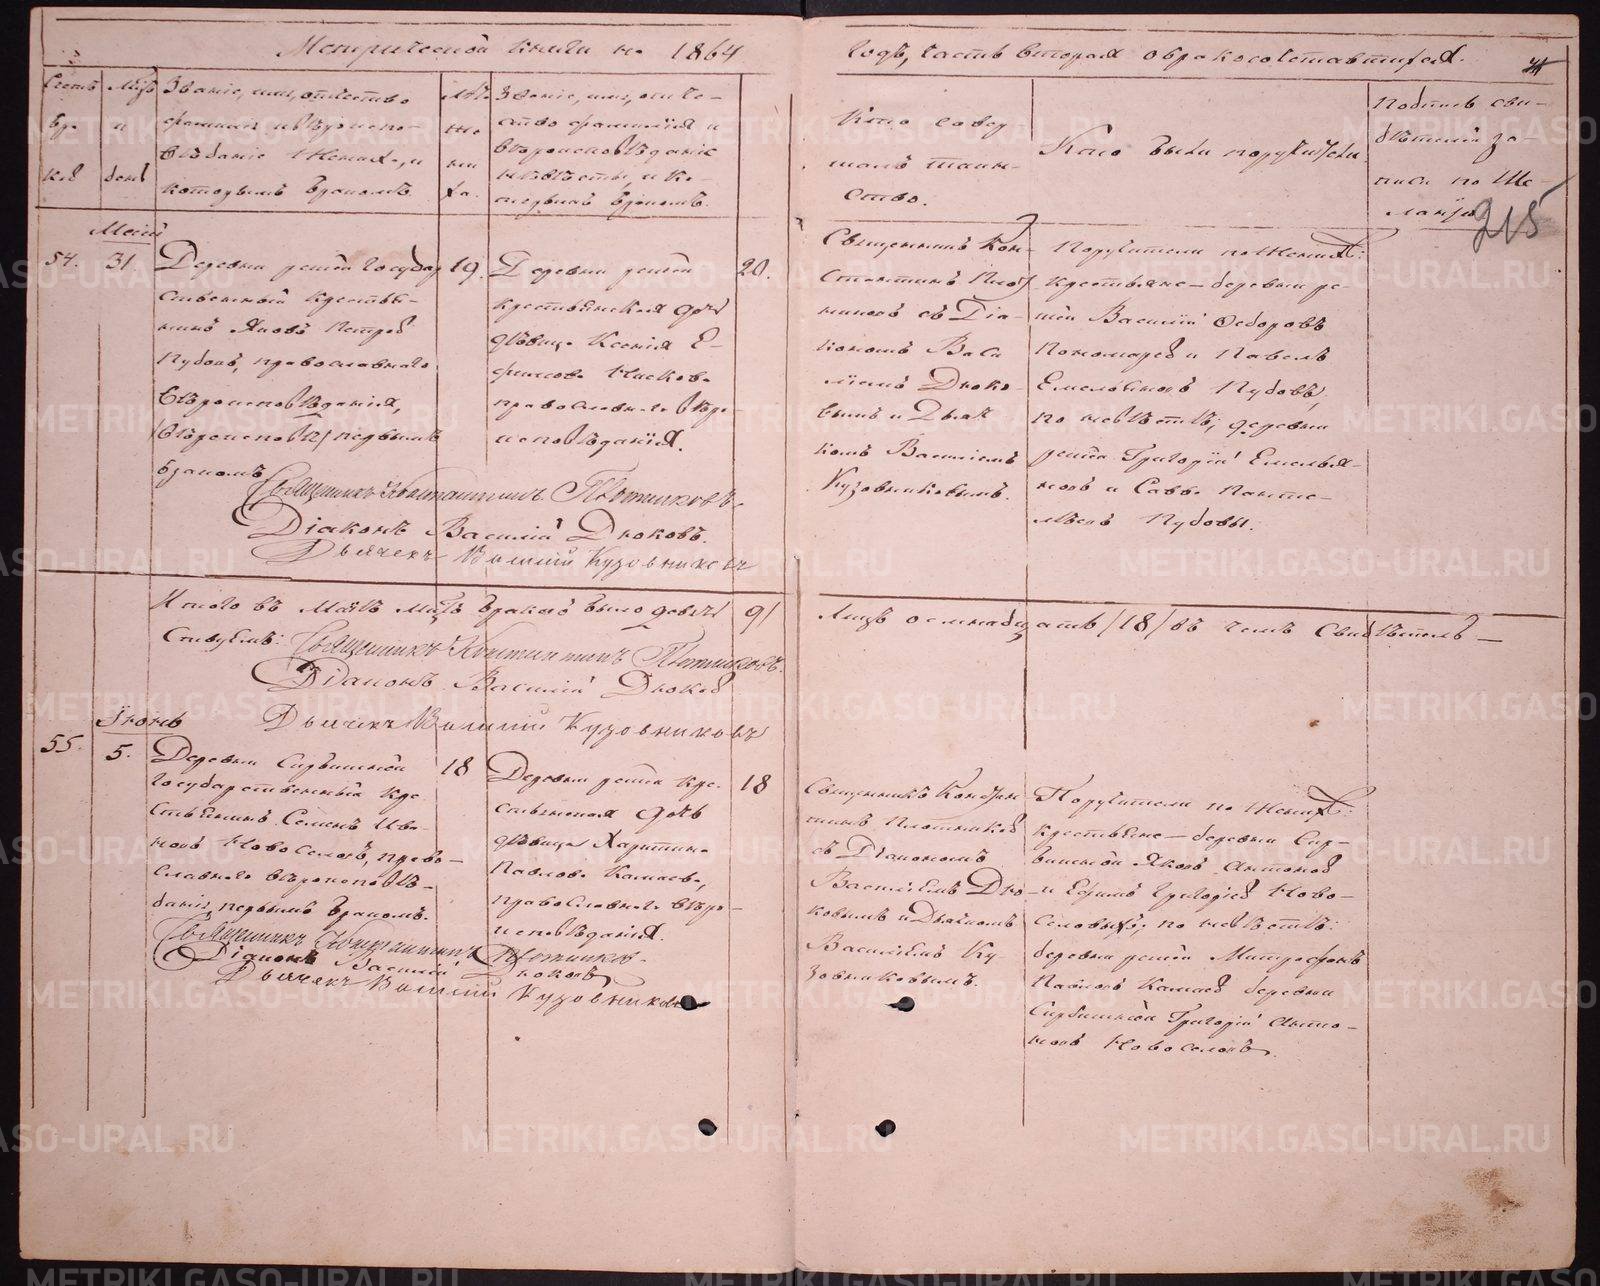 Метрической книги на 1864
годъ, часть вторая о бракосочетавшихся.
Счетъ бра ковъ
Мцъ и день
Званіе, имя, отчество
фамилія и вѣроиспо-
вѣданіе Жениха, и
которымъ бракомъ
Лѣта Же ни ха.
Званіе, имя, отче-
ство фамилія и
вѣроисповѣданіе
невѣсты, и ко-
торымъ бракомъ.
Кто совер
шалъ таин-
ство.
Кто были поручители.
Подпись сви-
дѣтелей за-
писи по Же-
ланію
215
Май
54. 31
Деревни
Государ
ственный крестья-
нинъ Яковъ Петровъ
Пубовъ, православнаго
вѣроисповѣданія,
первымъ
бракомъ
19.
Деревни
крестьянская дочь
дѣвица Ксенія Е-
фимова
православнаго вѣро
исповѣданія.
20.
Священникъ Кон-
стантинъ Плот
никовъ съ Діа-
кономъ Васи
ліемъ Дюко-
вымъ и Дьяч
комъ Василіемъ
Кузовниковымъ.
Поручители по Женихѣ:
крестьяне — деревни
Василій Ѳедоровъ
Пономаревъ и Павелъ
Емельяновъ Пубовъ,
по невѣстѣ; деревни
Григорій Емелья-
новъ и Савва Панте-
лѣевъ Пубовы.
Священникъ Константинъ Плотниковъ.
Діаконъ Василій Дюковъ.
Дьячекъ Василій Кузовниковъ
Итого въ Маѣ Мцѣ браковъ было девять /9/
Лицъ осмнадцать /18/ въ чемъ Свидѣтель —
ствуемъ: Священникъ Константинъ Плотниковъ.
Діаконъ Василій Дюковъ
Дьячекъ Василій Кузовниковъ
Іюнь
55. 5.
Деревни
Государственный кре
стьянинъ Семенъ Ива-
новъ Новоселовъ, право-
славнаго вѣроисповѣ-
данія, первымъ бракомъ.
18
Деревни
кре-
стьянская дочь
дѣвица Харитина
Павлова Камаева,
православнаго вѣро-
исповѣданія.
18
Священникъ Констан
тинъ Плотниковъ
съ Діакономъ
Василіемъ Дю-
ковымъ и Дьячкомъ
Василіемъ Ку-
зовниковымъ.
Поручители по Женихѣ:
крестьяне — деревни
Яковъ Антоновъ
и Ефимъ Григорьевъ Ново-
селовы; по невѣстѣ:
деревни
Митрофанъ
Павловъ Камаевъ деревни
Григорій Анто-
новъ Новоселовъ.
Священникъ Константинъ Плотниковъ.
Діаконъ Василій Дюковъ
Дьячекъ Василій Кузовниковъ
METRIKI.GASO-URAL.RU